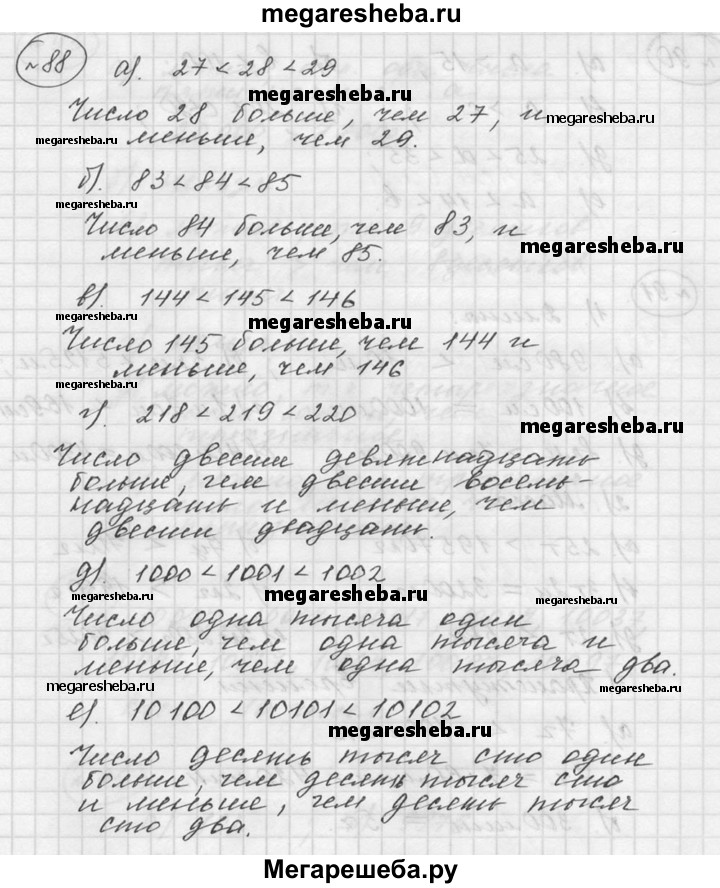 megaresheba.ru
№88 а). 27 < 28 < 29
megaresheba.ru
Число 28 больше, чем 27, и
megaresheba.ru
megaresheba.ru меньше, чем 29.
б). 83 < 84 < 85
megaresheba.ru
Число 84 больше, чем 83, и
меньше, чем 85.
megaresheba.ru
в). 144 < 145 < 146
megaresheba.ru
Число 145 больше, чем 144 и
меньше, чем 146
megaresheba.ru
г). 218 < 219 < 220
megaresheba.ru
Число двести девятнадцать
больше, чем двести восем-
надцать и меньше, чем
двести двадцать.
д). 1000 < 1001 < 1002
megaresheba.ru
megaresheba.ru
Число одна тысяча один
больше, чем одна тысяча и
меньше, чем одна тысяча два.
megaresheba.ru
megaresheba.ru
е). 10 100 < 10101 < 10102
megaresheba.ru
Число десять тысяч сто один
больше, чем десять тысяч сто
и меньше, чем десять тысяч
сто два.
Мегарешеба.ру